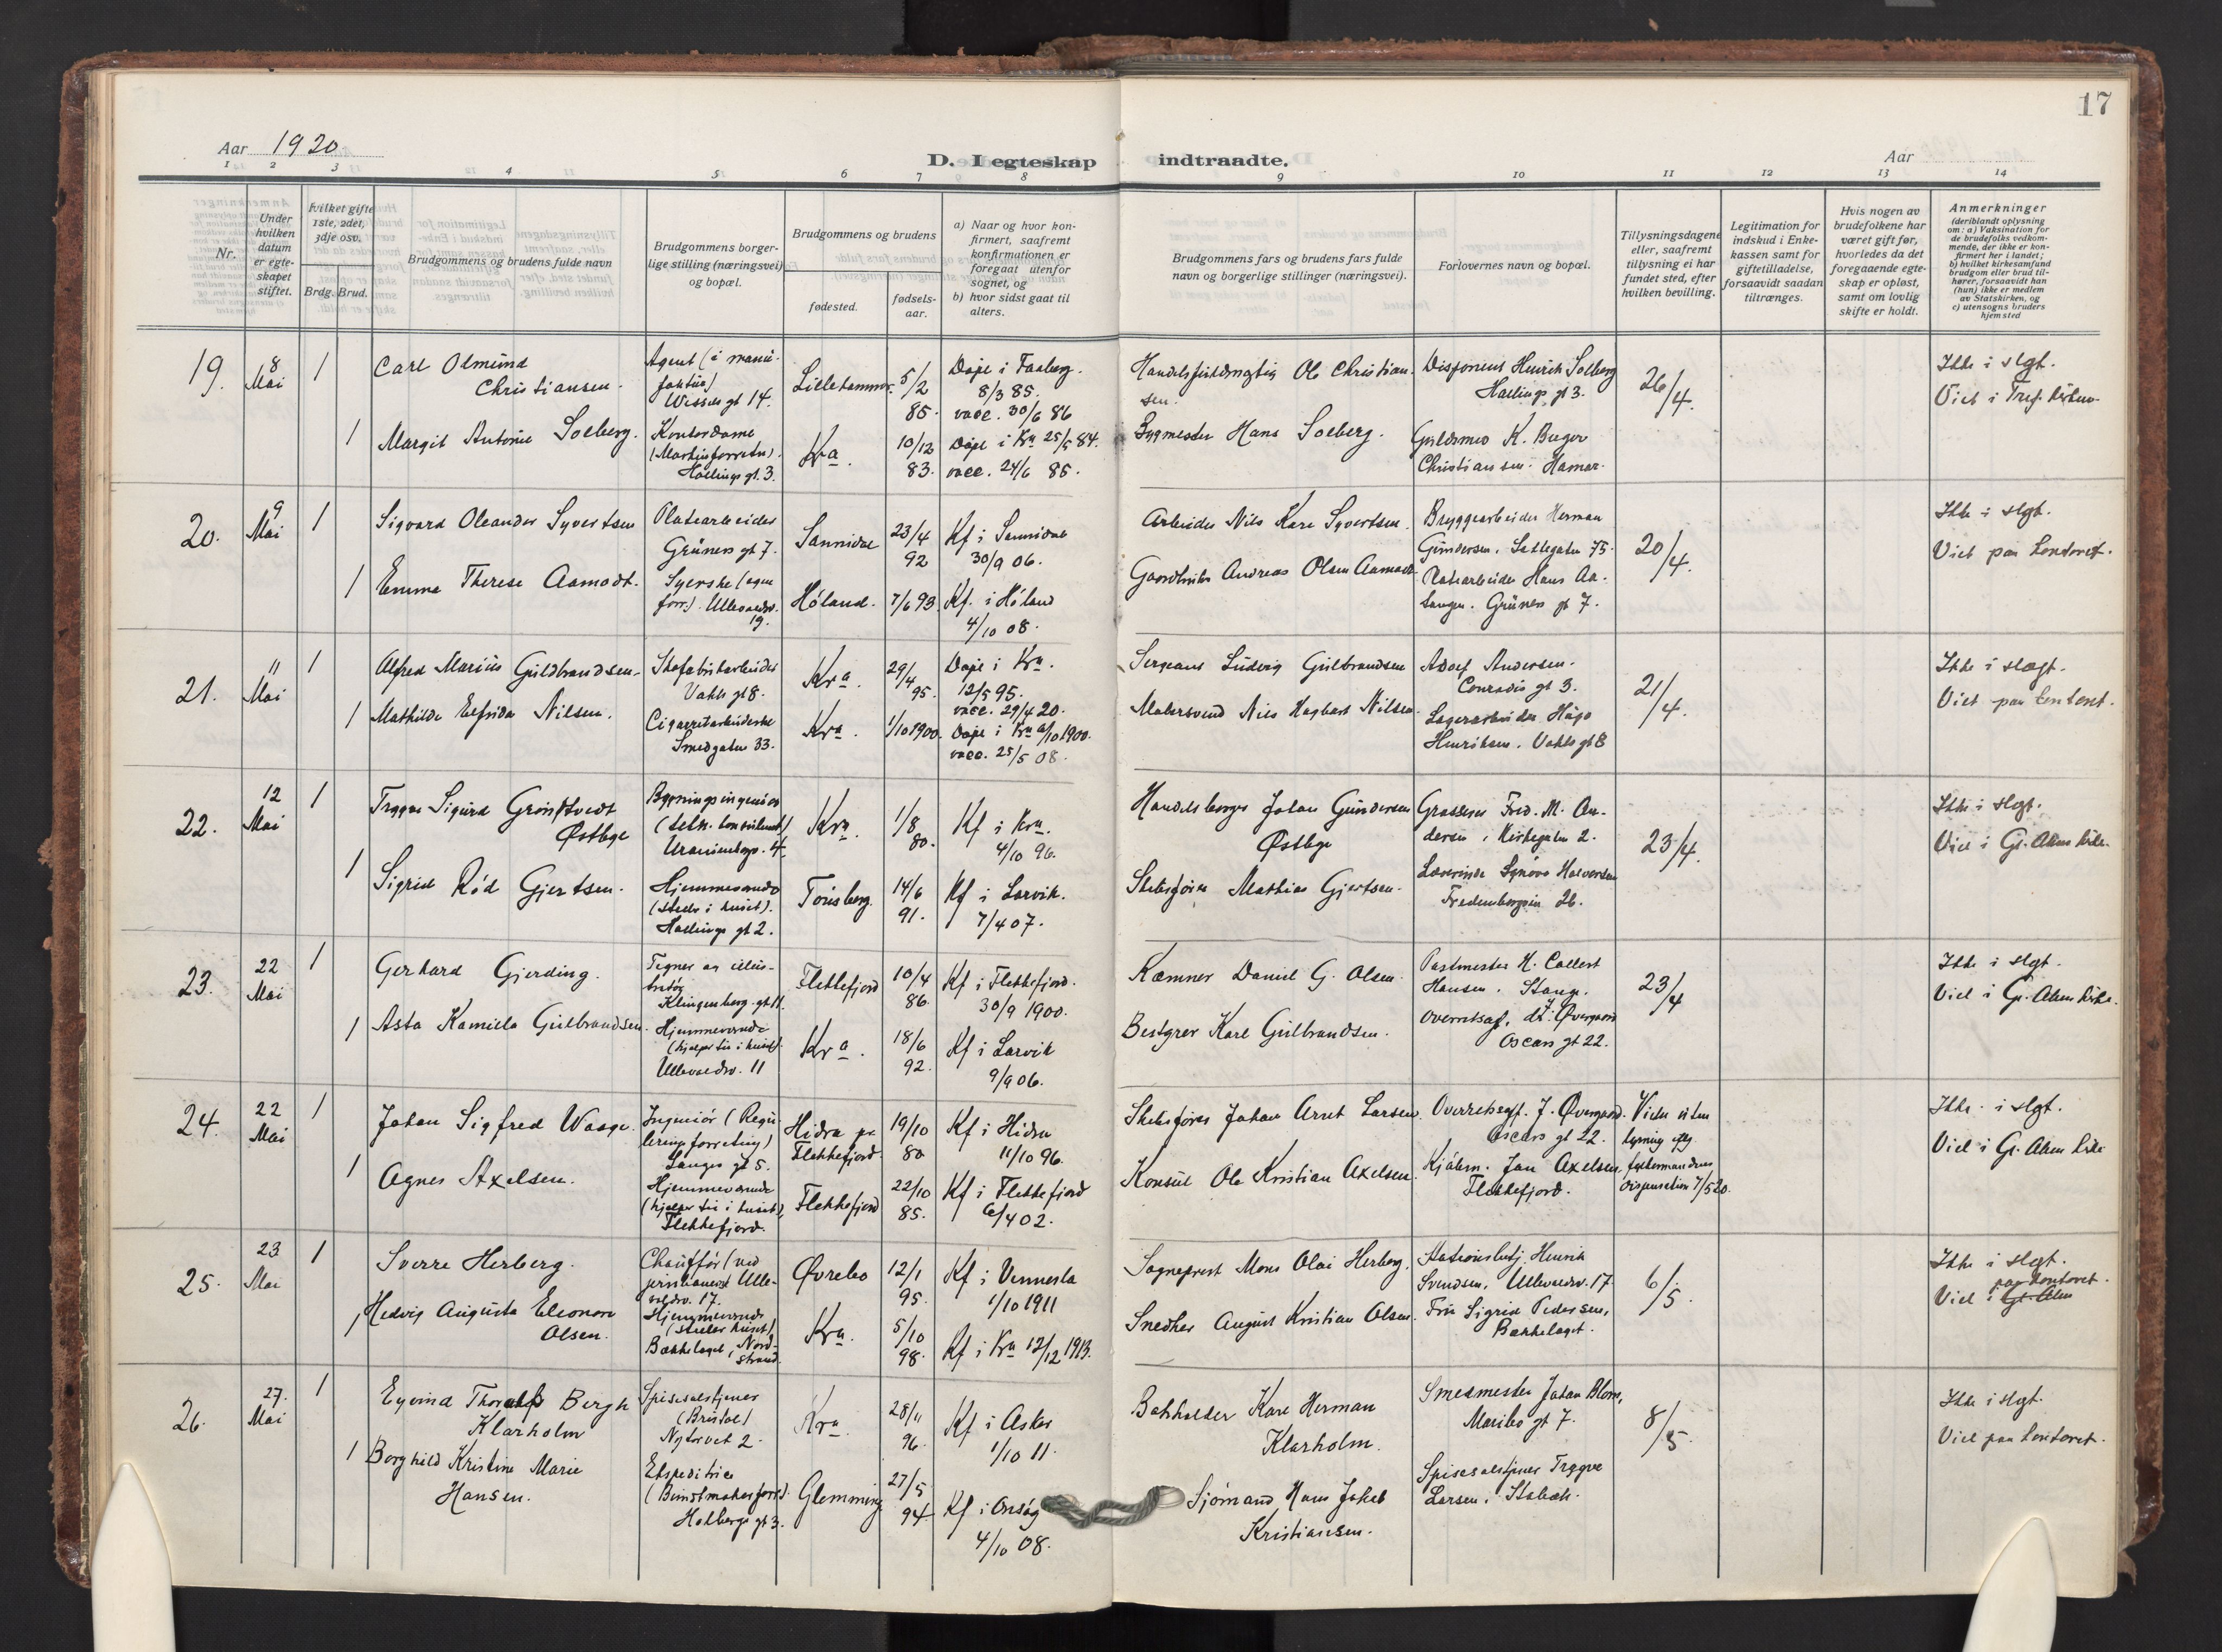 17
Aar 1920.
Aar
D. I egteskap indtraadte.
1 2 3 4 5 6 7 8 9 10 11 12 13 14
Nr.
Under
hvilken
datum
er egte-
skapet
stiftet.
hvilket gifte
1ste, 2det,
3dje osv.
Brdg. Brud.
Brudgommens og brudens fulde navn
Brudgommens borger-
lige stilling (næringsvei)
og bopæl.
Brudgommens og brudens
fødested.
fødsels-
aar.
a) Naar og hvor kon-
firmert, saafremt
konfirmationen er
foregaat utenfor
sognet, og
b) hvor sidst gaat til
alters.
Brudgommens fars og brudens fars fulde
navn og borgerlige stillinger (næringsvei).
Forlovernes navn og bopæl.
Tillysningsdagene
eller, saafremt
tillysning ei har
fundet sted, efter
hvilken bevilling.
Legitimation for
indskud i Enke-
kassen samt for
giftetilladelse,
forsaavidt saadan
tiltrænges.
Hvis nogen av
brudefolkene har
været gift før,
hvorledes da det
foregaaende egte-
skap er opløst,
samt om lovlig
skifte er holdt.
Anmerkninger
(deriblandt oplysning
om: a) Vaksination for
de brudefolks vedkom-
mende, der ikke er kon-
firmert her i landet;
b) hvilket kirkesamfund
brudgom eller brud til-
hører, forsaavidt han
(hun) ikke er medlem
av Statskirken, og
c) utensogns bruders
hjemsted
19.
8
Mai
1
Carl Olmund
Christiansen.
Agent (i manu-
faktur)
Wessels gt 14.
Lillehammer.
5/2
85.
Døpt i Faaberg.
8/3 85.
vacc. 30/6 86
Handelsfuldmægtig Ole Christian-
sen.
Disponent Henrik Solberg
Hallings gt 3.
26/4.
Ikke i slegt.
Viet i Tref. kirken
1
Margit Antonie Solberg.
Kontordame
Hallings gt. 3.
Kra.
10/12
83.
Døpt i Kra 25/5 84.
vacc. 24/6 85.
Bygmester Hans Solberg.
Guldsmed K. Birger
Christiansen. Hamar.
20.
9
Mai
1
Sigvard Oleander Syvertsen
Platearbeider
Grüners gt 7.
Sannidal
23/4
92
Kf i Sannidal
30/9 06.
Arbeider Nils Kare Syvertsen.
Bryggearbeider Herman
Gundersen.
20/4.
Ikke i slegt.
Viet paa kontoret.
1
Emma Therese Aamodt.
Syerske (egen
forr.). Ullevoldsv.
19.
Høland.
7/6 93
Kf. i Høland
4/10 08.
Gaardbruker Andreas Olsen Aamodt
Platearbeider Hans Aa-
Grüners gt 7.
21.
11
Mai
1
Alfred Marius Guldbrandsen.
Skofabrikarbeider
Vahls gt 8.
Kra.
29/4
95.
Døpt i Kra.
12/5 95.
vacc. 29/4 20.
Sergeant Ludvig Gulbrandsen
Adolf Andersen.
Conradis gt 3.
21/4.
Ikke i slegt.
Viet paa kontoret.
1
Mathilde Elfrida Nilsen.
Cigaretarbeiderske
Smedgaten 33.
Kra.
1/10 1900.
Døpt i Kra /10 1900.
vacc. 25/5 08.
Malersvend Nils Hagbart Nilsen
Lagerarbeider Hugo
Henriksen. Vahls gt 8
22.
12
Mai
1
Trygve Sigurd Grønstvedt
Østbye
Bygningsingeniør
(tekn. konsulent)
Uranienborgv. 4.
Kra.
1/8
80.
Kf i Kra.
4/10 96.
Handelsborger Johan Gundersen
Østbye
Grosserer Fred. M. An-
dersen, Kirkegaten 2.
23/4.
Ikke i slegt.
Viet i Gl. Akers kirke.
1
Sigrid Rød Gjertsen.
Hjemmeværende
(steller i huset).
Hallings gt 2.
Tønsberg.
14/6
91.
Kf i Larvik.
7/4 07.
Skibsfører Mathias Gjertsen.
Lærerinde Synøve Halvorsen
Fredensborgvn 26.
23.
22
Mai
1
Gerhard Gjerding.
Tegner og illus-
tratør
Klingenberg gt 11.
Flekkefjord
10/4
86.
Kf i Flekkefjord.
30/9 1900.
Kæmner Daniel G. Olsen.
Postmester H. Callert
Hansen. Stange.
23/4
Ikke i slegt.
Viet i Gl. Akers kirke.
1
Asta Kamilla Gulbrandsen.
Hjemmeværende
(hjelper til i huset).
Ullevoldsv. 11
Kra.
18/6
92.
Kf i Larvik
9/9 06.
Bestyrer Karl Gulbrandsen.
Overretssagf. J. Øvergaard
Oscars gt 22.
24.
22
Mai
1
Johan Sigfred Waage.
Ingeniør (Regu-
leringsforretning)
Langes gt 5.
Hidra pr.
Flekkefjord.
19/10
80
Kf i Hidra
11/10 96.
Skibsfører Johan Arnt Larsen.
Overretssagf. J. Øvergaard.
Oscars gt 22.
Viet uten
lysning eftr
forlovernes
dispensation 7/5 20.
Ikke i slegt.
Viet i Gl. Akers kirke
1
Agnes Axelsen.
Hjemmeværende
(hjelper til i huset),
Flekkefjord.
Flekkefjord
22/10
85.
Kf i Flekkefjord
6/4 02.
Konsul Ole Kristian Axelsen.
Kjøbm. Jan Axelsen,
Flekkefjord.
25.
23
Mai
1
Sverre Herberg.
Chauffør (ved
Ulle-
voldsv. 17.
Øvrebø
12/1
95.
Kf i Vennesla
1/10 1911
Sogneprest Mons Olai Herberg.
Stationsbetj. Henrik
Svendsen, Ullevoldsv. 17
6/5.
Ikke i slegt.
paa kontoret.
Viet i Gl. Aker
1
Hedvig Augusta Eleonora
Olsen.
Hjemmeværende
(steller huset)
Bækkelaget, Nord-
strand.
Kra.
5/10
98.
Kf i Kra 12/12 1913.
Snedker August Kristian Olsen.
Fru Sigrid Pedersen,
Bækkelaget.
26.
27.
Mai
1
Eyvind Thoralf Bergh
Klarholm
Spisesalstjener
(Bristol)
Nytorvet 2.
Kra.
28/11
96.
Kf i Asker
1/10 11.
Bokholder Karl Herman
Klarholm.
Smedmester Johan Blom,
Maribo gt 7.
8/5.
Ikke i slegt.
Viet paa kontoret.
1
Borghild Kristine Marie
Hansen.
Ekspeditrice
(Buntmakerforr.).
Holbergs gt 3.
Glemminge
27/5
94.
Kf i Onsøy
4/10 08.
Sjømand Hans Jakob
Kristiansen.
Spisesalstjener Trygve
Larsen. Stabæk.